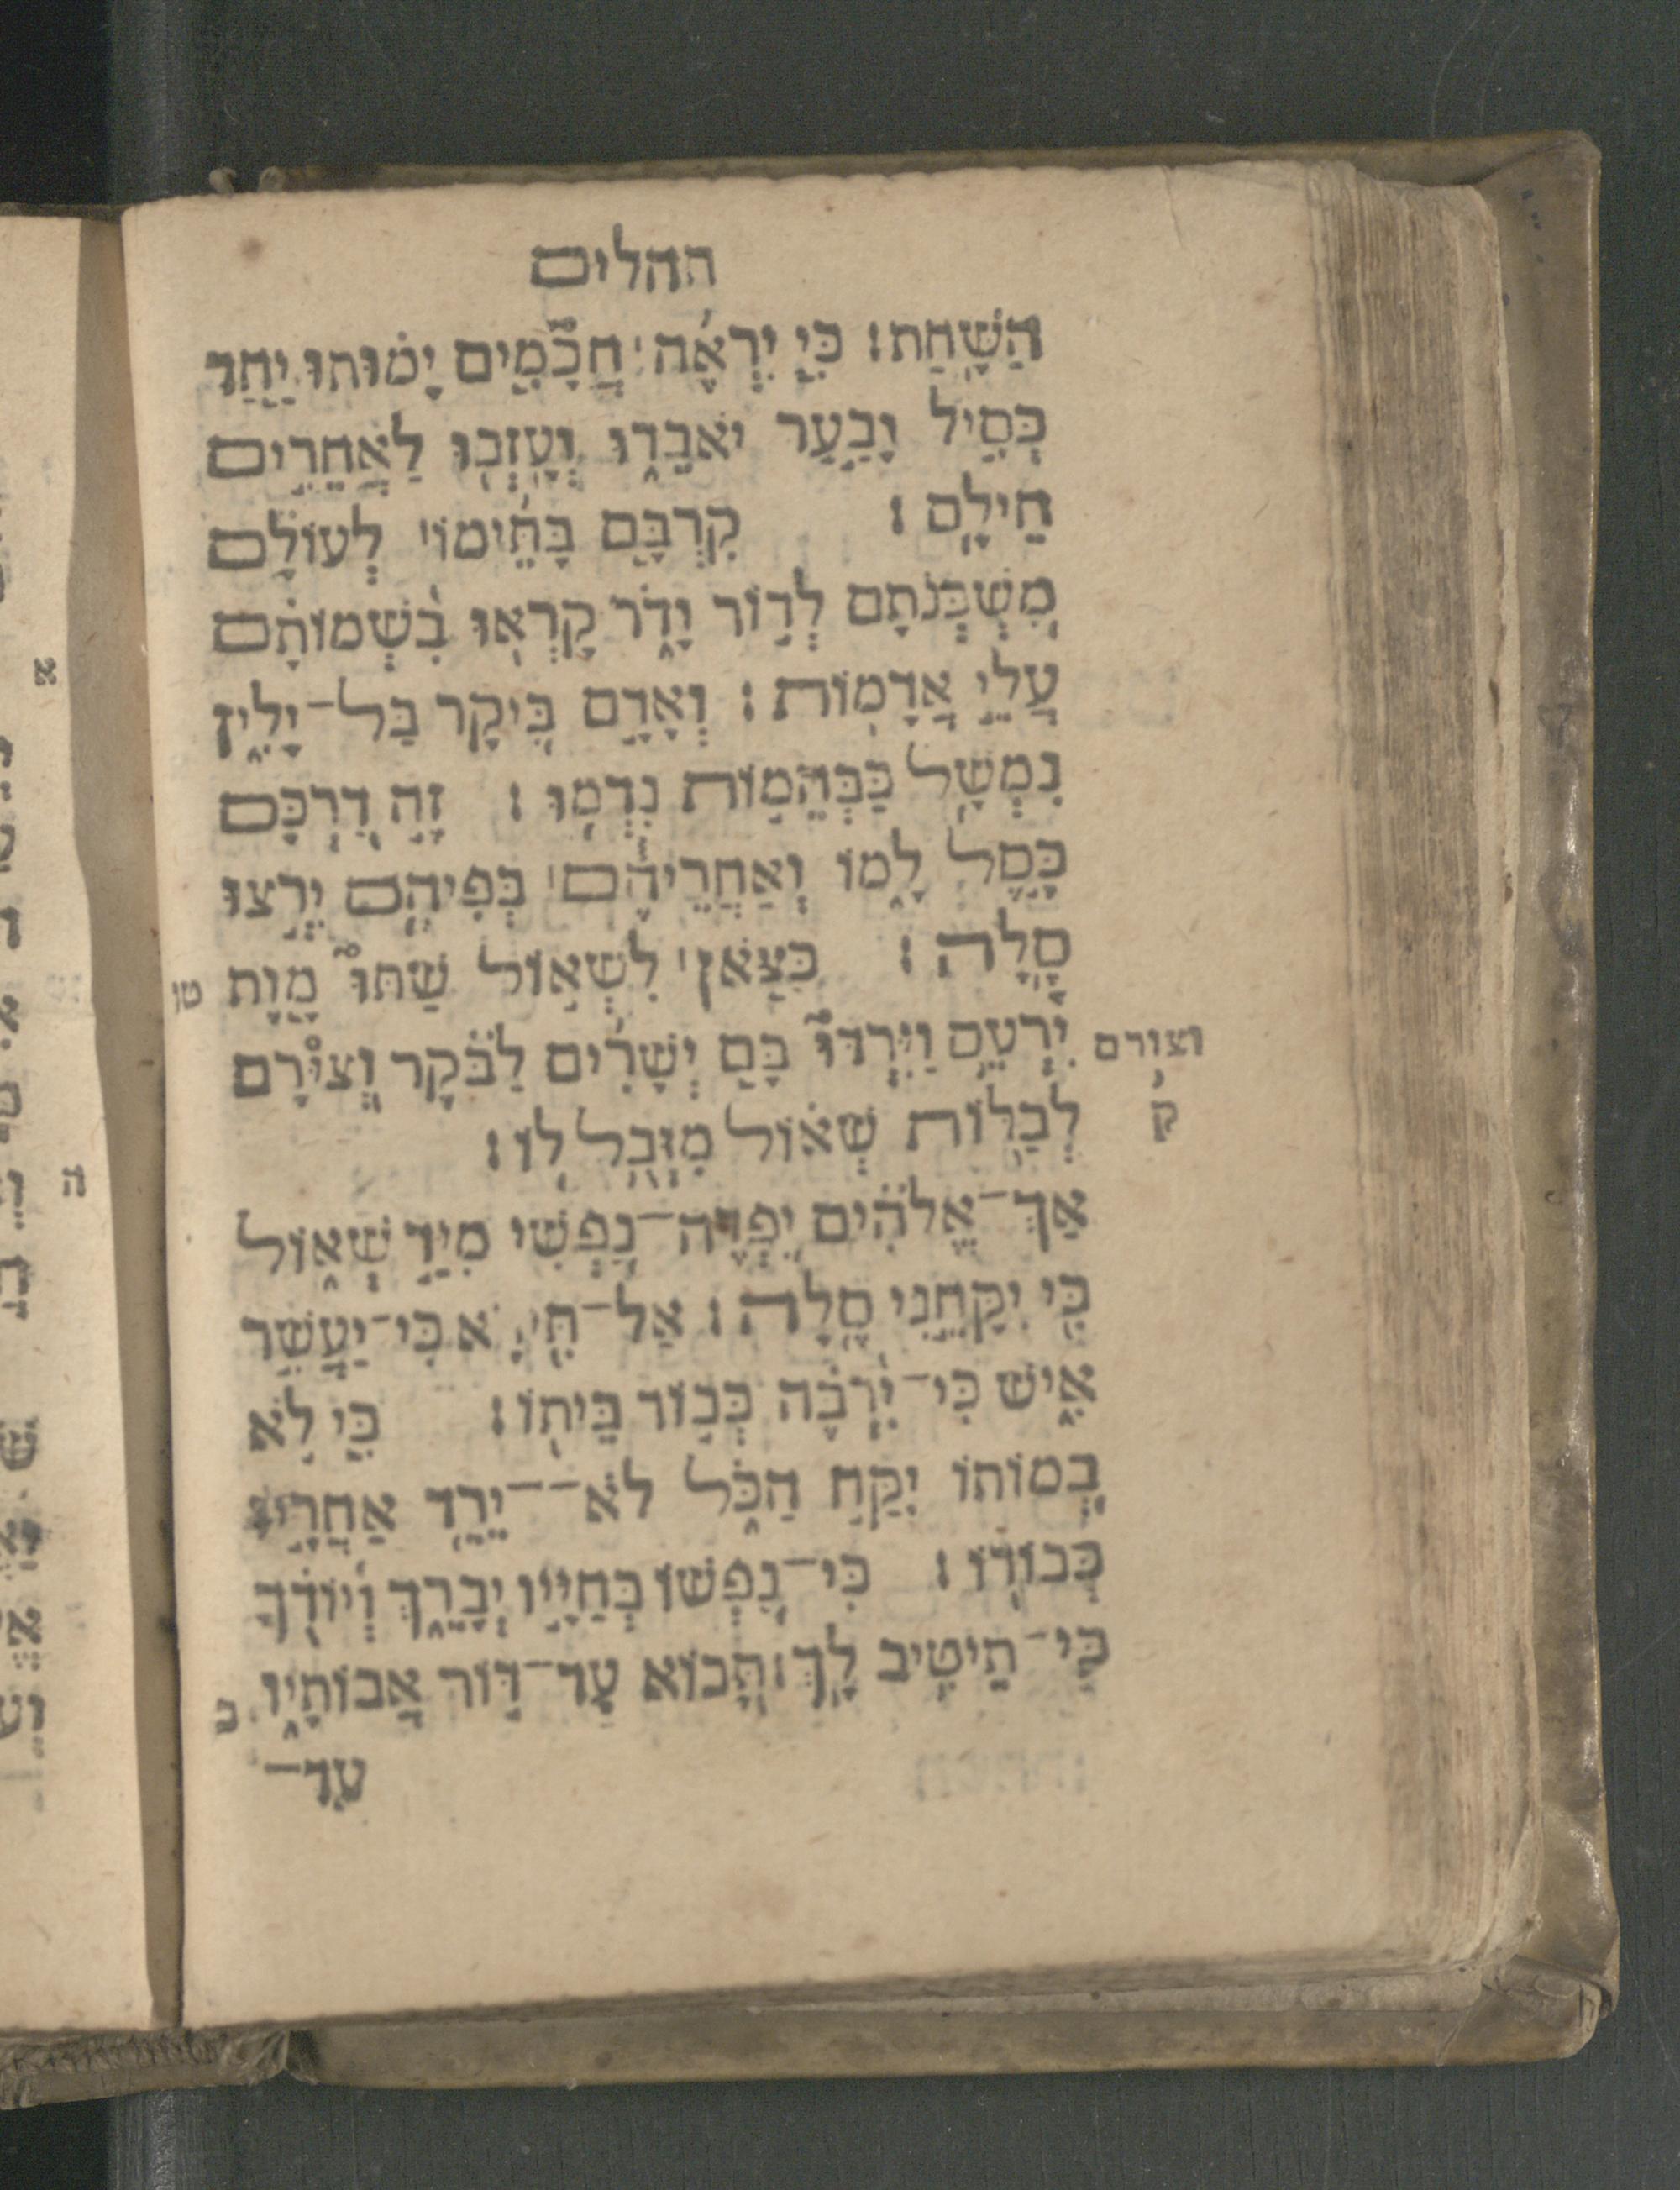 תהלים
הַשָּׁחַת׃ כִּי יִרְאֶה׀ חֲכָמִים יָמוּתוּ יַחַד
כְּסִיל וָבַעַר יֹאבֵדוּ וְעָזְבוּ לַאֲחֵרִים
חֵילָם׃ קִרְבָּם בָּתֵּימוֹ׀ לְעוֹלָם
מִשְׁכְּנֹתָם לְדוֹר וָדֹר קָרְאוּ בִשְׁמוֹתָם
עֲלֵי אֲדָמוֹת׃ וְאָדָם בִּיקָר בַּל־יָלִין
נִמְשַׁל כַּבְּהֵמוֹת נִדְמוּ׃ זֶה דַרְכָּם
כֵּסֶל לָמוֹ וְאַחֲרֵיהֶם׀ בְּפִיהֶם יִרְצוּ
סֶלָה׃ כַּצֹּאן׀ לִשְׁאוֹל שַׁתּוּ מָוֶת
טו
יִרְעֵם וַיִּרְדּוּ בָם יְשָׁרִים לַבֹּקֶר וְצוּרָם
וצורם
ק
לְבַלּוֹת שְׁאוֹל מִזְּבֻל לוֹ׃
אַךְ־אֱלֹהִים יִפְדֶּה־נַפְשִׁי מִיַּד שְׁאוֹל
כִּי יִקָּחֵנִי סֶלָה׃ אַל־תִּירָא כִּי־יַעֲשִׁר
אִישׁ כִּי־יִרְבֶּה כְּבוֹד בֵּיתוֹ׃ כִּי לֹא
בְמוֹתוֹ יִקַּח הַכֹּל לֹא־־יֵרֵד אַחֲרָיו
כְּבוֹדוֹ׃ כִּי־נַפְשׁוֹ בְּחַיָּיו יְבָרֵךְ וְיוֹדֻךָ
כִּי־תֵיטִיב לָךְ׃ תָּבוֹא עַד־דּוֹר אֲבוֹתָיו
כ
עַד־